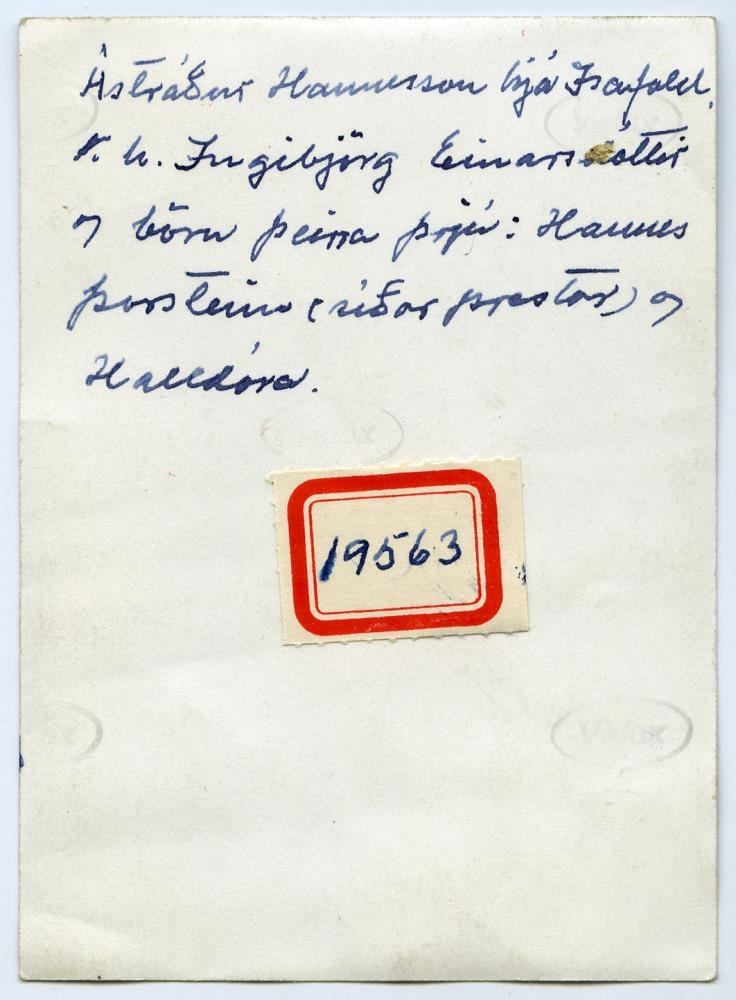 Ástráður Hannesson hjá Ísafold,
k. h. Ingibjörg Einarsdóttir
og börn þeirra þrjú: Hannes
Þorsteinn (síðar prestur) og
Halldóra.
19563
Velox
Velox